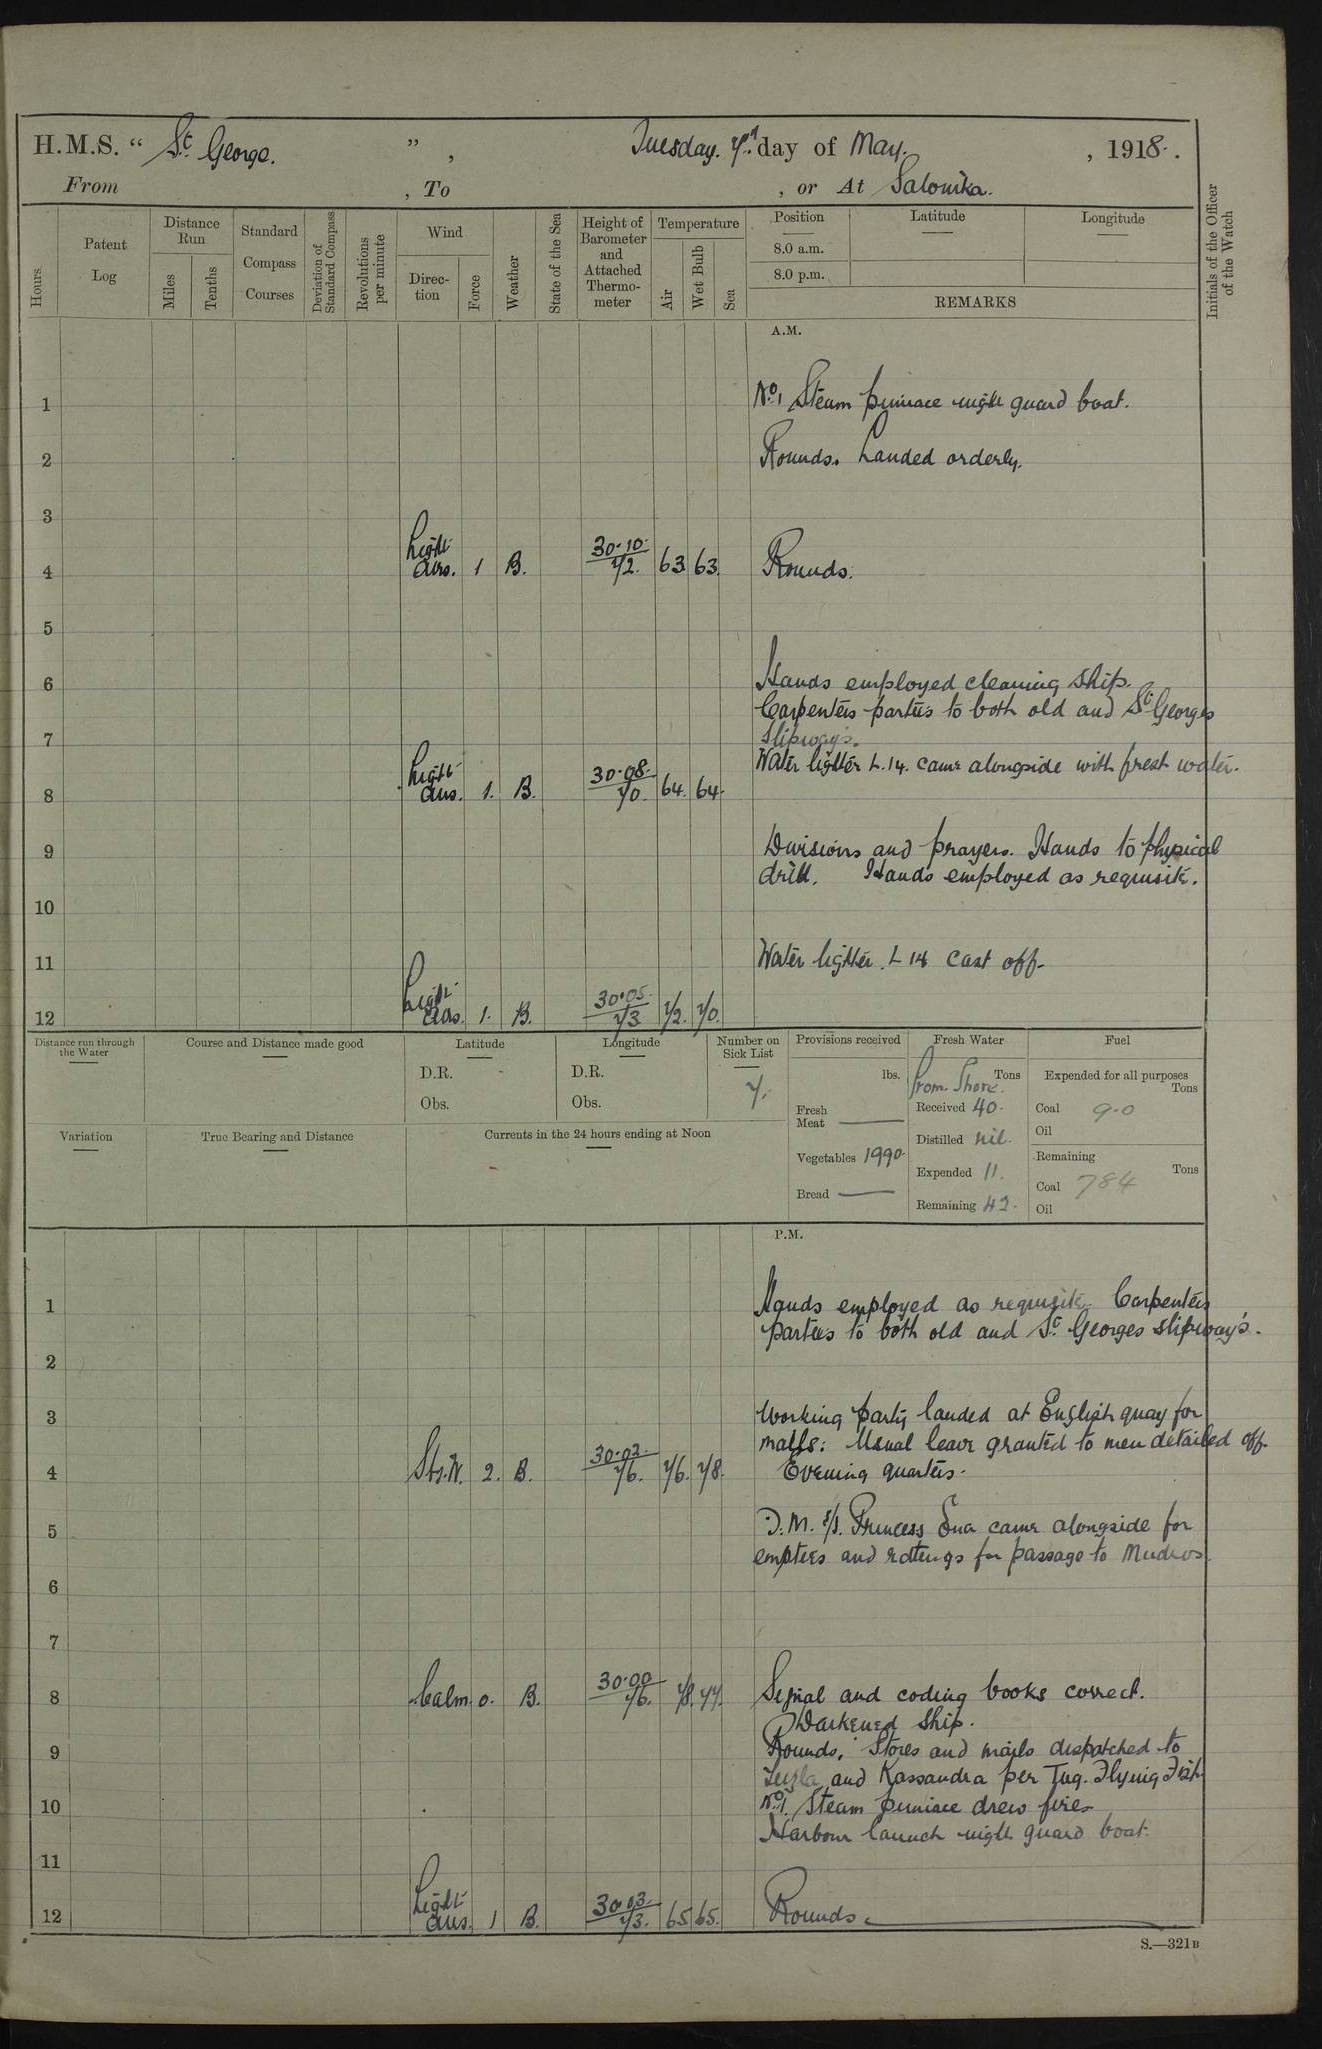 H.M.S. " St. George. ", Tuesday. 7th day of May. , 1918.
From , To , or At Salonika.
Hours
Patent Log
Distance Run
Miles
Tenths
Standard Compass Courses
Deviation of Standard Compass
Revolutions per minute
Wind
Direction
Force
Weather
State of the Sea
Height of Barometer and Attached Thermometer
Temperature
Air
Wet Bulb
Sea
Position
8.0 a.m.
8.0 p.m.
Latitude
Longitude
REMARKS
Initials of the Officer of the Watch
A.M.
1 No. 1 Steam pinnace night guard boat.
2 Rounds. Landed orderly.
3
4 Light airs. 1 B. 30.10. 72. 63 63. Rounds.
5
6 Hands employed cleaning ship.
Carpenters parties to both old and St. Georges
7 slipway's.
Water lighter L.14. came alongside with fresh water.
8 Light airs. 1. B. 30.08. 70. 64. 64.
9 Divisions and prayers. Hands to physical
drill. Hands employed as requisite.
10
11 Water lighter L 14 cast off.
12 Light airs. 1. B. 30.05. 73 72. 70.
Distance run through the Water
Course and Distance made good
Latitude
D.R.
Obs.
Longitude
D.R.
Obs.
Number on Sick List
7.
Provisions received
lbs.
Fresh Meat
Vegetables 1990.
Bread
Fresh Water
From Shore. Tons
Received 40.
Distilled nil.
Expended 11.
Remaining 42.
Fuel
Expended for all purposes
Tons
Coal 9.0
Oil
Remaining
Tons
Coal 784
Oil
Variation
True Bearing and Distance
Currents in the 24 hours ending at Noon
P.M.
1 Hands employed as requisite. Carpenters
parties to both old and St. Georges slipway's.
2
3 Working party landed at English quay for
mails: Usual leave granted to men detailed off.
4 2. B. 30.02. 76. 76. 78. Evening quarters.
5 D.M. s/s. Princess Ena came alongside for
empties and ratings for passage to Mudros.
6
7
8 Calm. 0. B. 30.00 76. 78. 77. Signal and coding books correct.
Darkened ship.
9 Rounds. Stores and mails despatched to
Tuzla and Kassandra per Tug. Flying Fish
10 No. 1. Steam pinnace drew fires
Harbour launch night guard boat.
11
12 Light airs. 1 B. 30.03. 73. 65 65. Rounds.
S.—321B